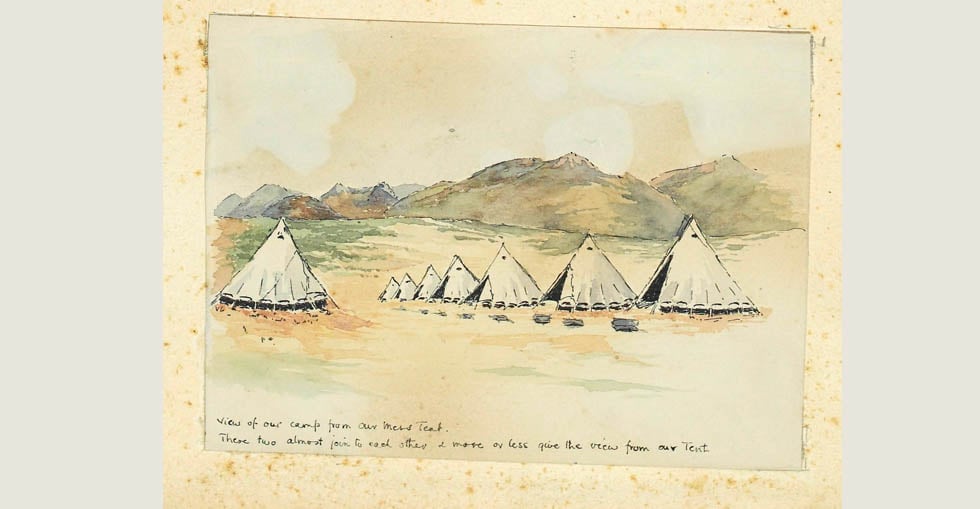 View of our camp from our Mess Tent.
These two almost join to each other & more or less give the view from our Tent